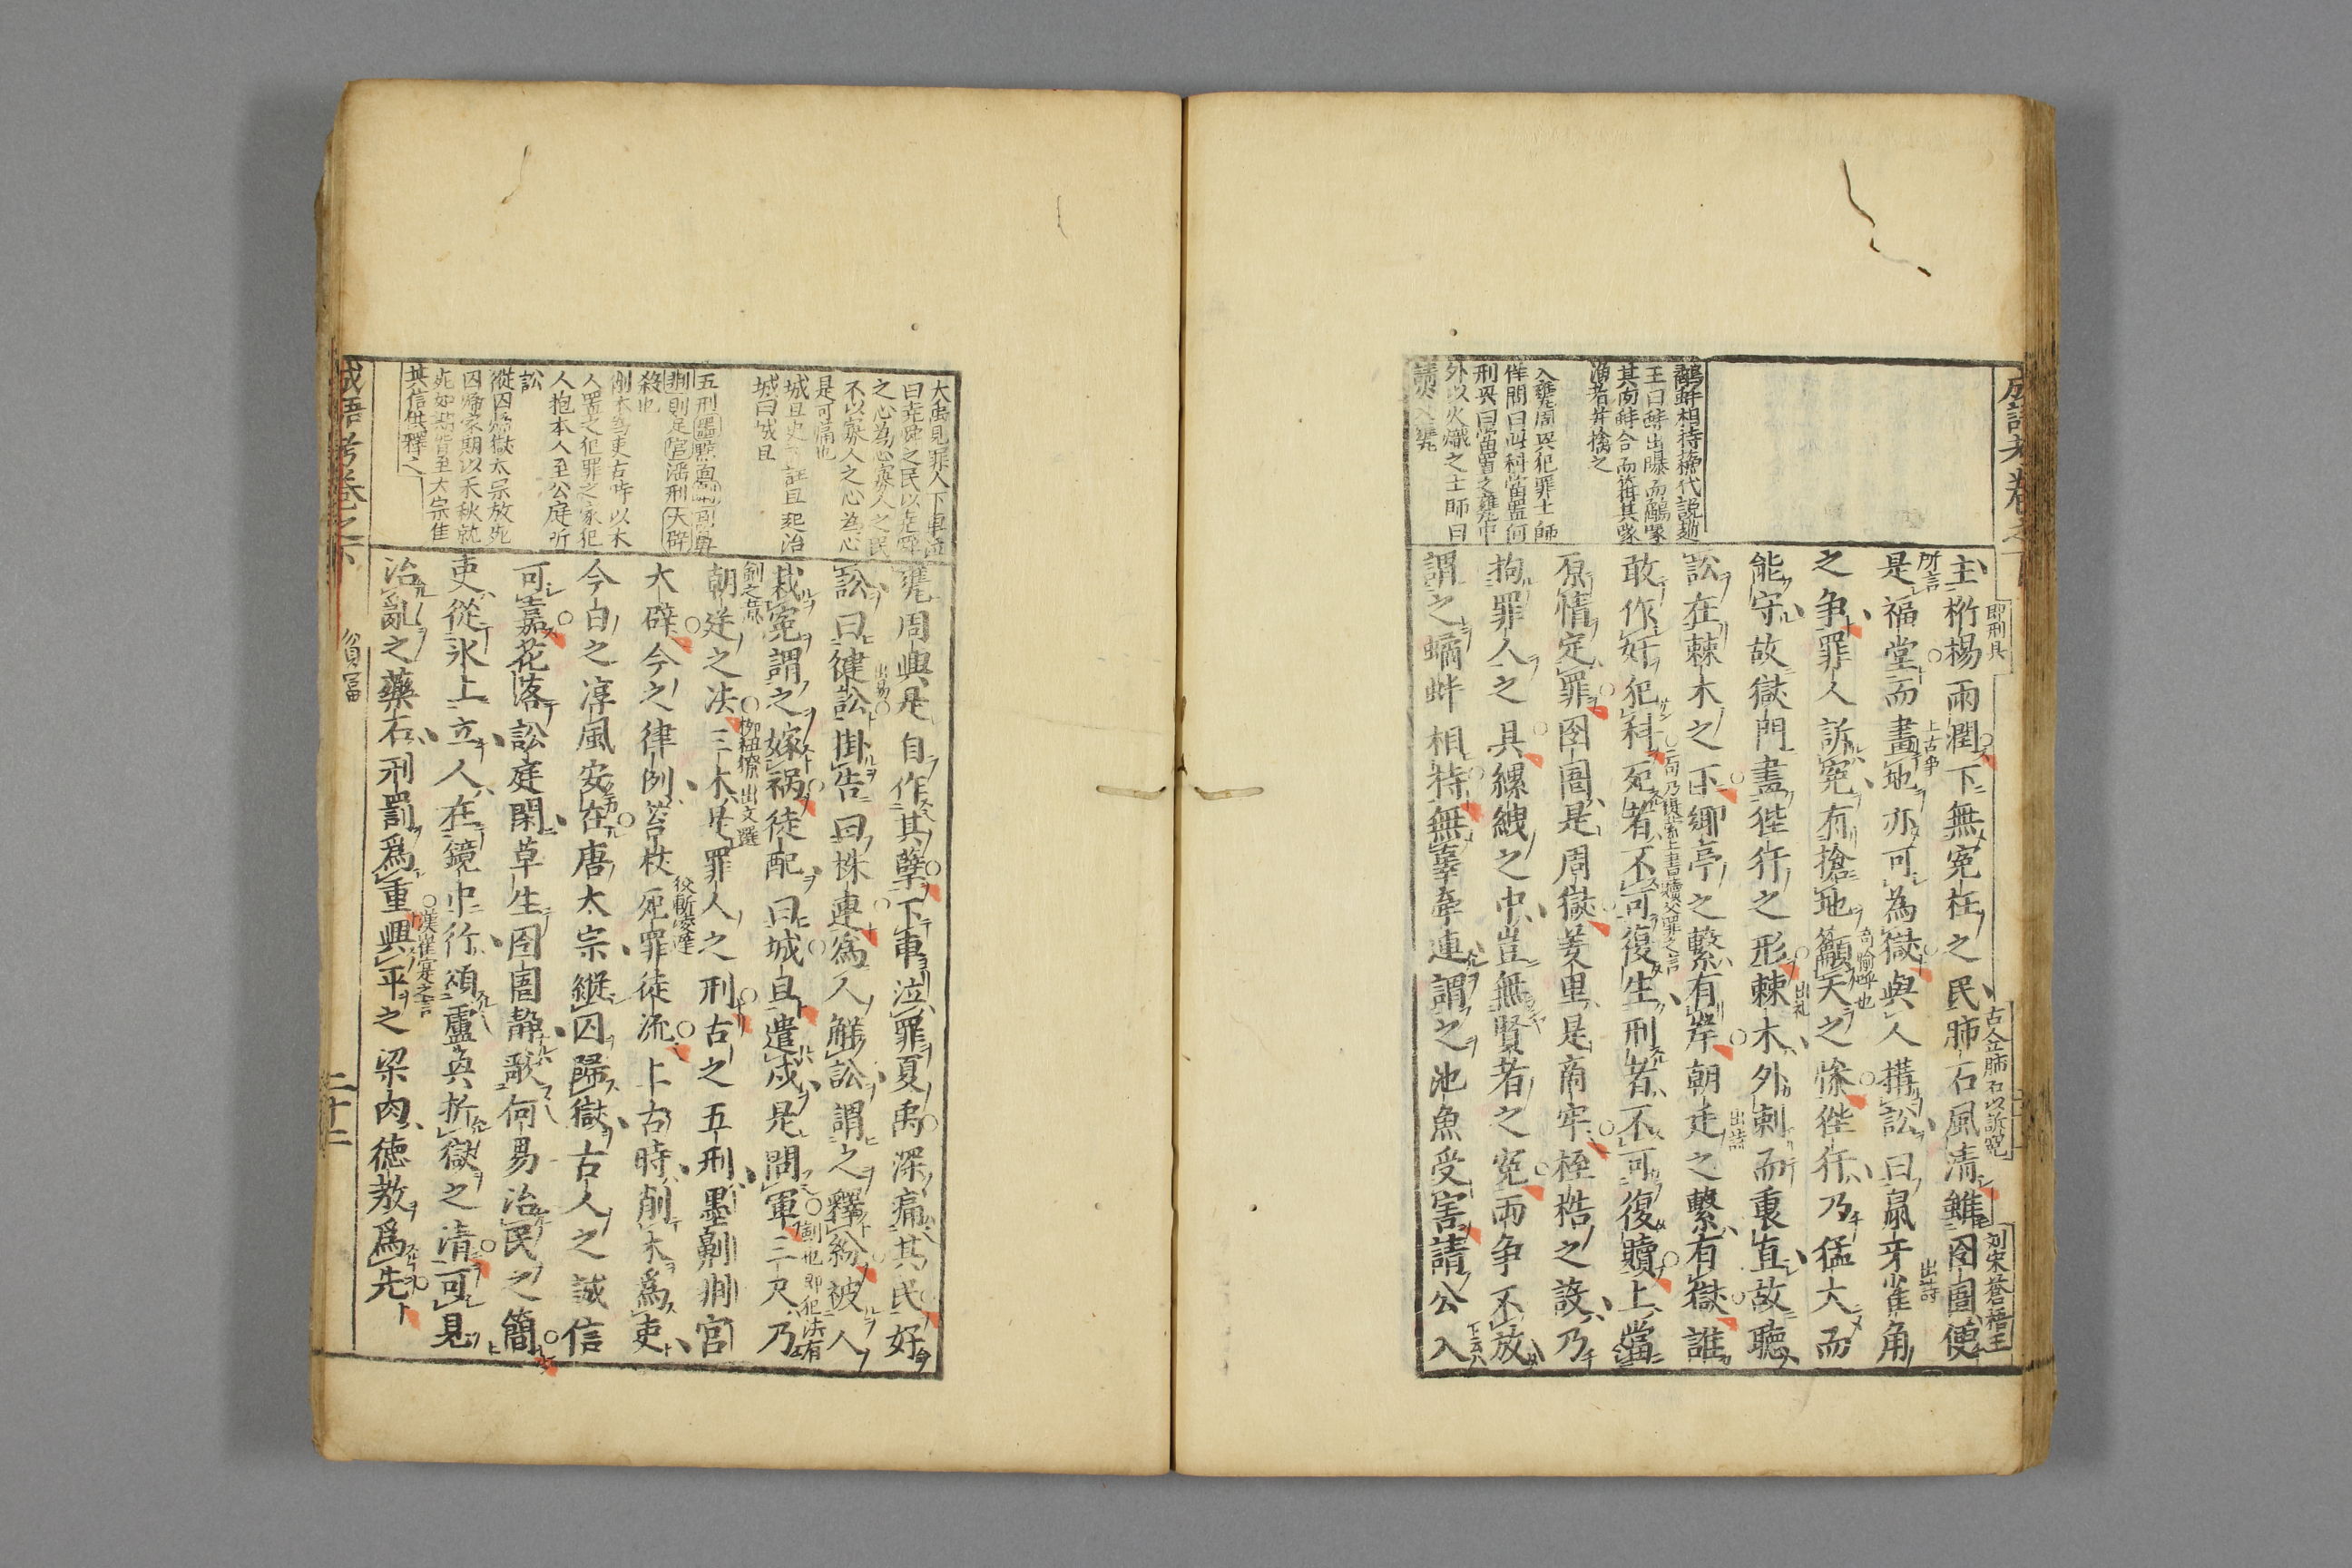 主桁楊雨潤下無寃枉之民肺石風清雖囹圄便
是福堂而畫地亦可為獄與人搆訟曰鼠牙雀角
之争罪人訴寃有搶地籲天之慘狴犴乃猛犬而
能守故獄門畫狴犴之形棘木外刺而裏直故聽
訟在棘木之下鄉亭之繫有岸朝廷之繫有獄誰
敢作奸犯科死者不可復生刑者不可復贖上當
原情定罪囹圄是周獄羑里是商牢桎梏之設乃
拘罪人之具縲絏之中豈無賢者之寃兩争不放
謂之鷸蚌相持無辜牽連謂之池魚受害請公入
即刑具
古今肺石以訴寃
刘宋蒼梧王
所言
上古事
出詩
奇愉呼也
出礼
出詩
鷸蚌相持蘇代説趙
王曰蚌出曝而鷸啄
其肉蚌合而箝其喙
漁者并擒之
入甕周興犯罪士師
佯問曰此科當置何
刑興曰當置之甕中
外以火熾之士師曰
請君入甕
甕周興是自作其孽下車泣罪夏禹深痛其民好
訟曰健訟掛告曰株連為人觧訟謂之釋紛被人
栽寃謂之嫁禍徒配曰城旦遣戍是問軍三尺乃
朝廷之法三木是罪人之刑古之五刑墨劓剕宮
大辟今之律例笞杖死罪徒流上古時削木為吏
今日之淳風安在唐太宗縱囚歸獄古人之誠信
可嘉花落訟庭閑草生囹圄静歌何易治民之簡
吏從氷上立人在鏡中行頌盧奐折獄之清可見
治亂之藥石刑罰為重興平之梁肉徳教為先
出易
出文選
漢崔寔之言
大禹見罪人下車泣
曰尭舜之民以尭舜
之心為心寡人之民
不以寡人之心為心
是可痛也
城旦史 註旦起治
城曰城旦
五刑墨黥面劓割鼻
剕刖足宮淫刑大辟
殺也
削木為吏古時以木
人置之犯罪之家犯
人抱本人至公庭听
訟
縱囚歸獄太宗放死
囚歸家期以禾秋就
死如期皆至太宗隹
其信供釋之
成語考卷之下
貧富
二十二